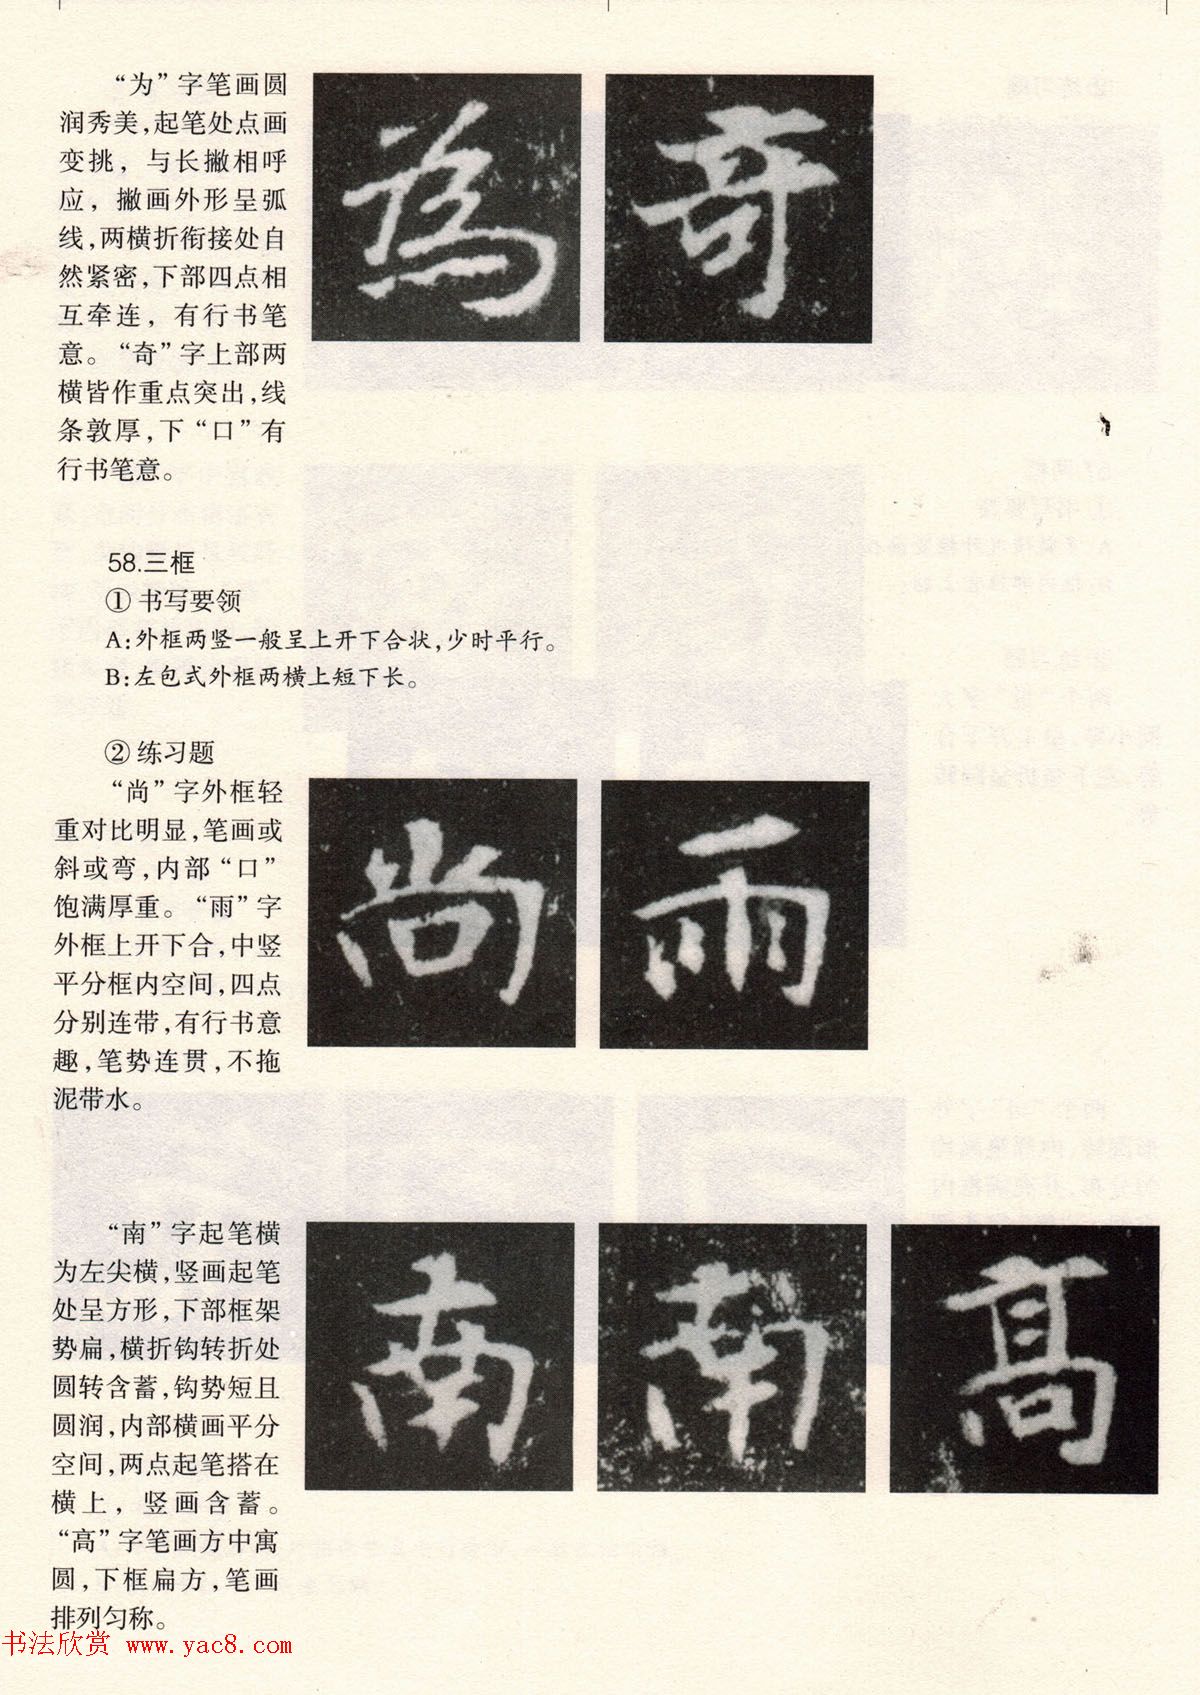 “为”字笔画圆
润秀美,起笔处点画
变挑，与长撇相呼
应，撇画外形呈弧
线,两横折衔接处自
然紧密,下部四点相
互牵连，有行书笔
意。“奇”字上部两
横皆作重点突出,线
条敦厚,下“口”有
行书笔意。
为奇
58.三框
①书写要领
A:外框两竖一般呈上开下合状,少时平行。
B:左包式外框两横上短下长。
②练习题
“尚”字外框轻
重对比明显,笔画或
斜或弯,内部“口”
饱满厚重。“雨”字
外框上开下合,中竖
平分框内空间,四点
分别连带,有行书意
趣,笔势连贯,不拖
泥带水。
尚雨
“南”字起笔横
为左尖横,竖画起笔
处呈方形,下部框架
势扁,横折钩转折处
圆转含蓄,钩势短且
圆润,内部横画平分
空间,两点起笔搭在
横上，竖画含蓄。
“高”字笔画方中寓
圆,下框扁方,笔画
排列匀称。
南南高
书法欣赏 www.yac8.com